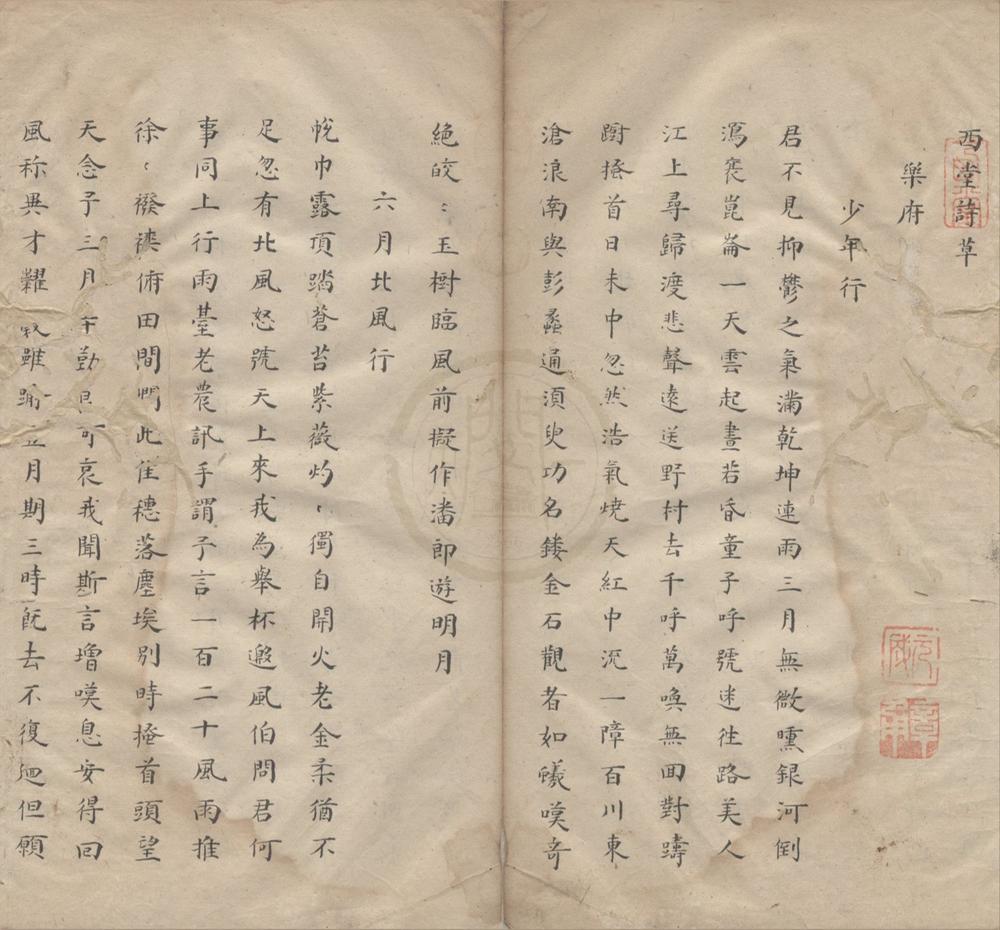 西堂詩草
樂府
少年行
君不見抑鬱之氣滿乾坤連雨三月無微曛銀河倒
瀉袞崑崙一天雲起晝若昏童子呼號迷徃路美人
江上尋歸渡悲聲遠送野村去千呼萬喚無回對躊
躕搔首日未中忽然浩氣燒天紅中流一障百川東
滄浪南與彭蠡通須臾功名鏤金石觀者如蟻嘆奇
絕皎〻玉樹臨風前擬作潘郎遊明月
六月北風行
帨巾露頂踏蒼苔紫薇灼〻獨自開火老金柔猶不
足忽有北風怒號天上來我為舉杯邀風伯問君何
事同上行雨臺老農訊手謂予言一百二十風雨推
徐〻襏襫俯田間門此隹穗落塵埃別時掩首頭望
天念予三月辛勤可哀我聞斯言增嘆息安得回
風称異才糶雖踰五月期三時既去不復廻但願